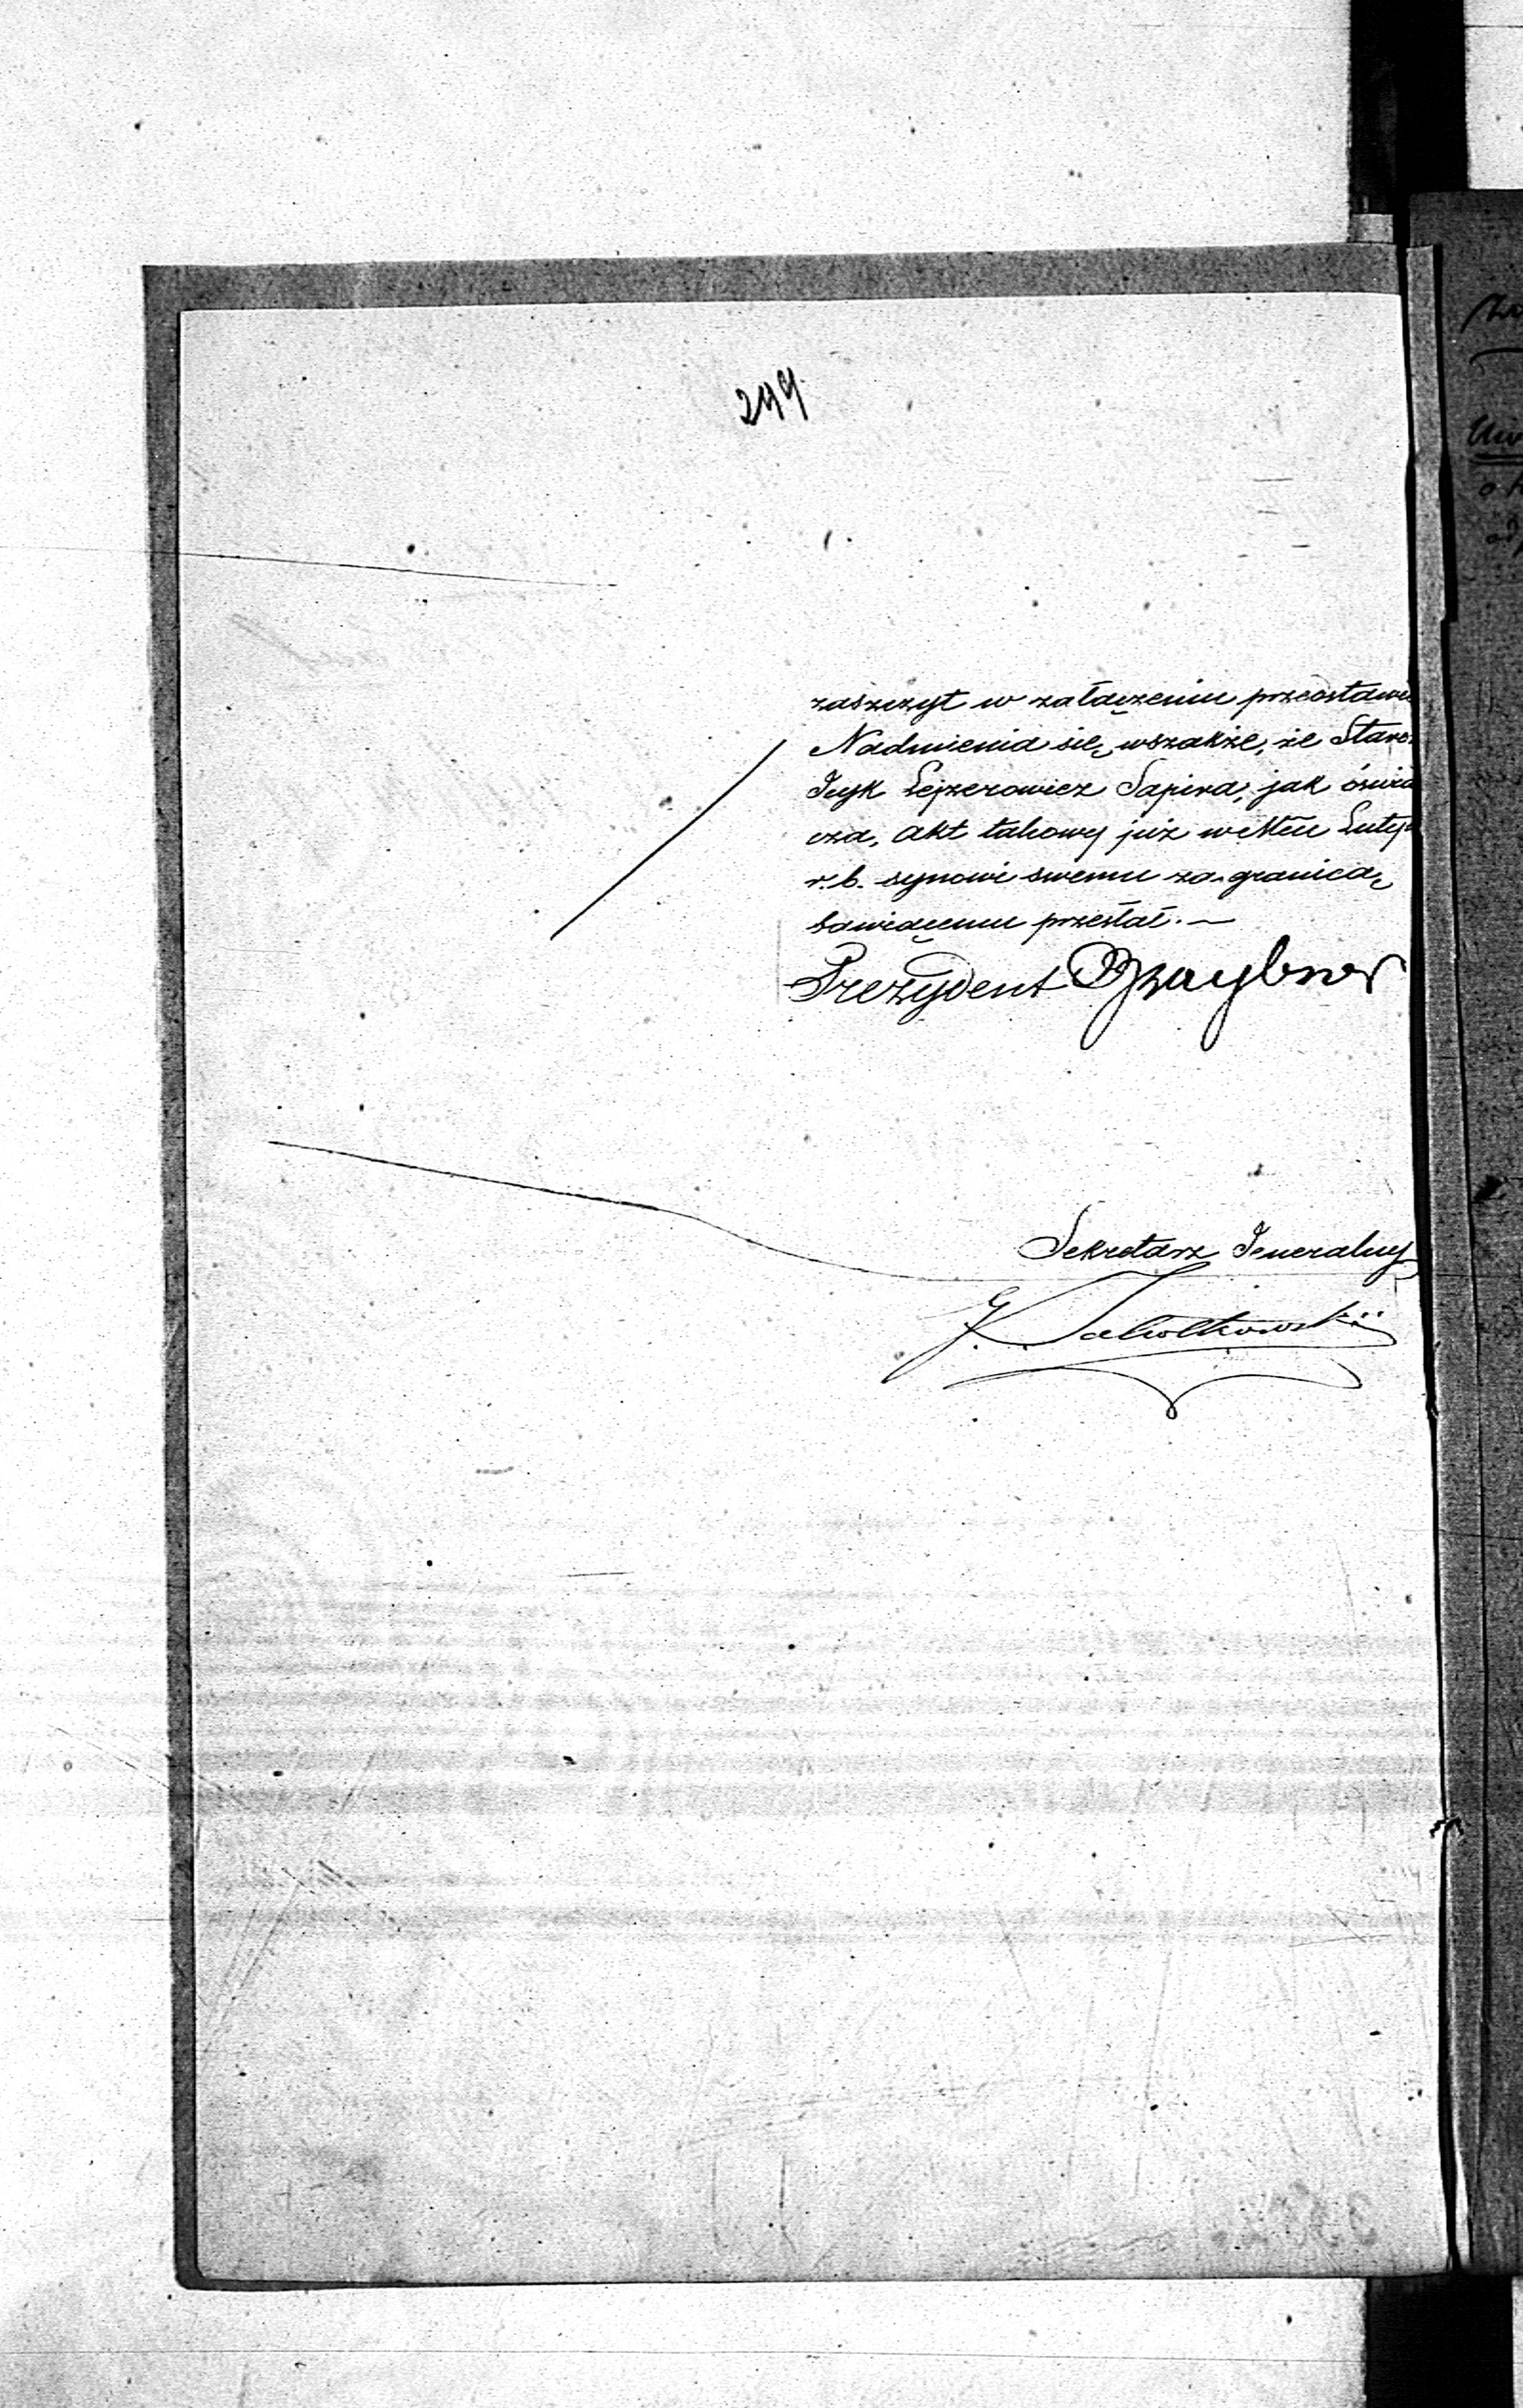 299
zaszczyt w załączeniu przedstawi
Nadmienia się wszakże, że Staro
Icyk Lejzerowicz Sapira, jak oświa
cza, akt takowy już w Mcu Lutym
r. b. synowi swemu za granicą
bawiącemu przesłał. —
Prezydent
Sekretarz Jeneralny